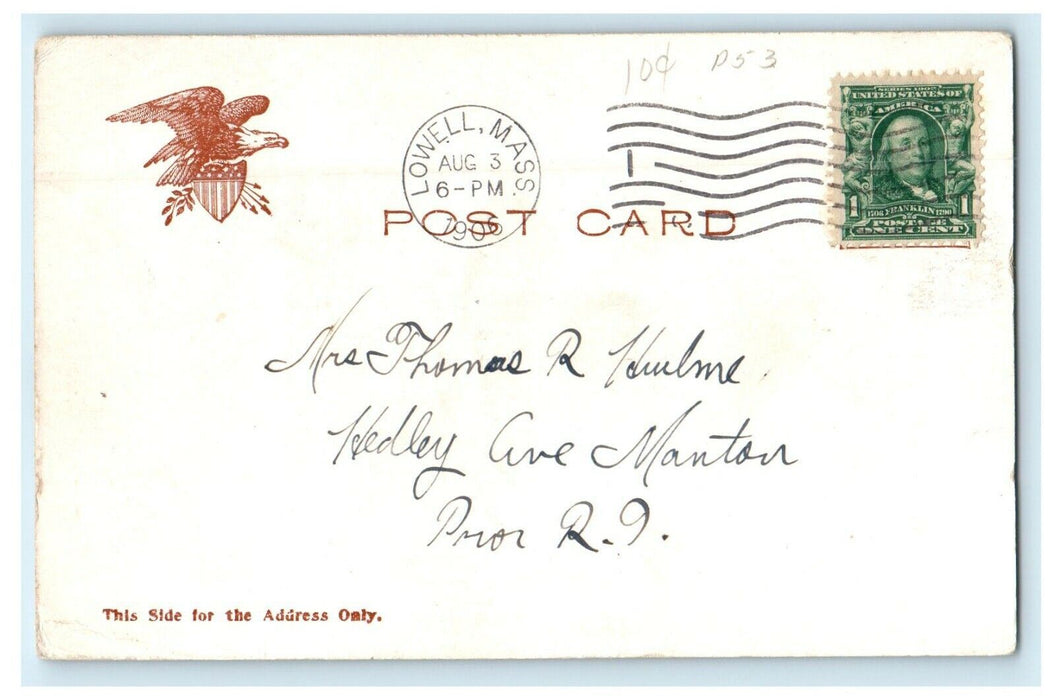 10¢ P53
SERIES 1902
UNITED STATES OF
AMERICA
LOWELL, MASS.
AUG 3
6-PM
190
POST CARD
1 1706 FRANKLIN 1790 1
POSTAGE
ONE CENT
Mrs Thomas R Hulme
Hedley Ave Manton
Prov R.I.
This Side for the Address Only.